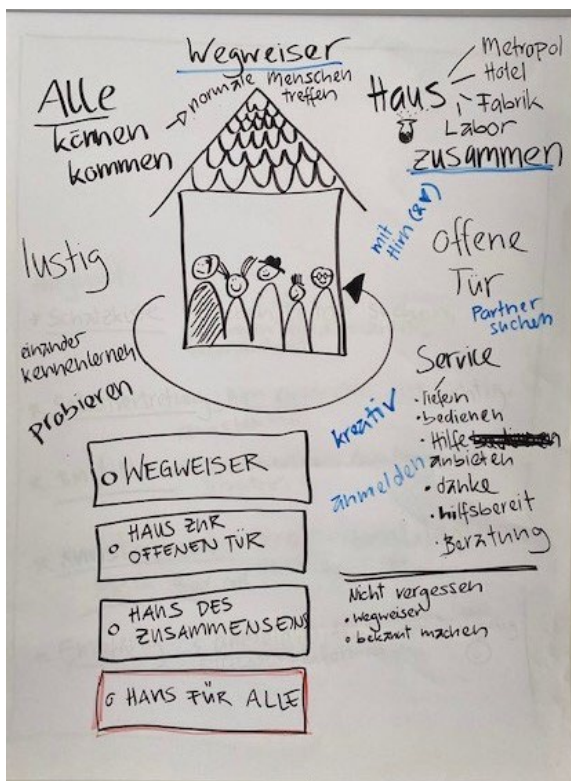 Wegweiser
normale Menschen
treffen
Alle
können
kommen
Haus
Metropol
Hotel
Fabrik
Labor
zusammen
mit
Hirn
offene
Tür
Partner
suchen
lustig
einander
kennenlernen
probieren
Service
• liefern
• bedienen
• Hilfe
anbieten
• danke
• hilfsbereit
• Beratung
kreativ
anmelden
WEGWEISER
HAUS ZUR
OFFENEN TÜR
HAUS DES
ZUSAMMENSEINS
HAUS FÜR ALLE
Nicht vergessen
• wegweiser
• bekannt machen